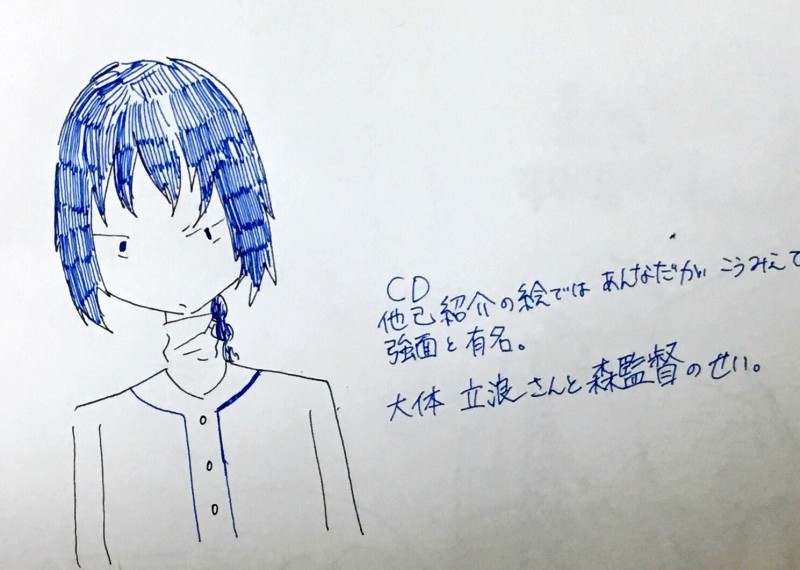 CD
他己紹介の絵では あんなだが こうみえて
強面と有名。
大体 立浪さんと森監督のせい。